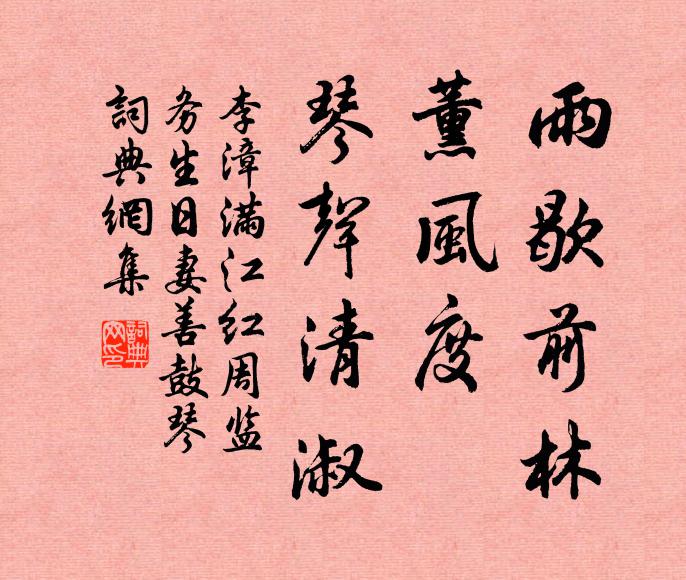 雨歇前林
薰風度
琴聲清淑
李漳满江红周监
务生日妻善鼓琴
詞典網集
詞典網印